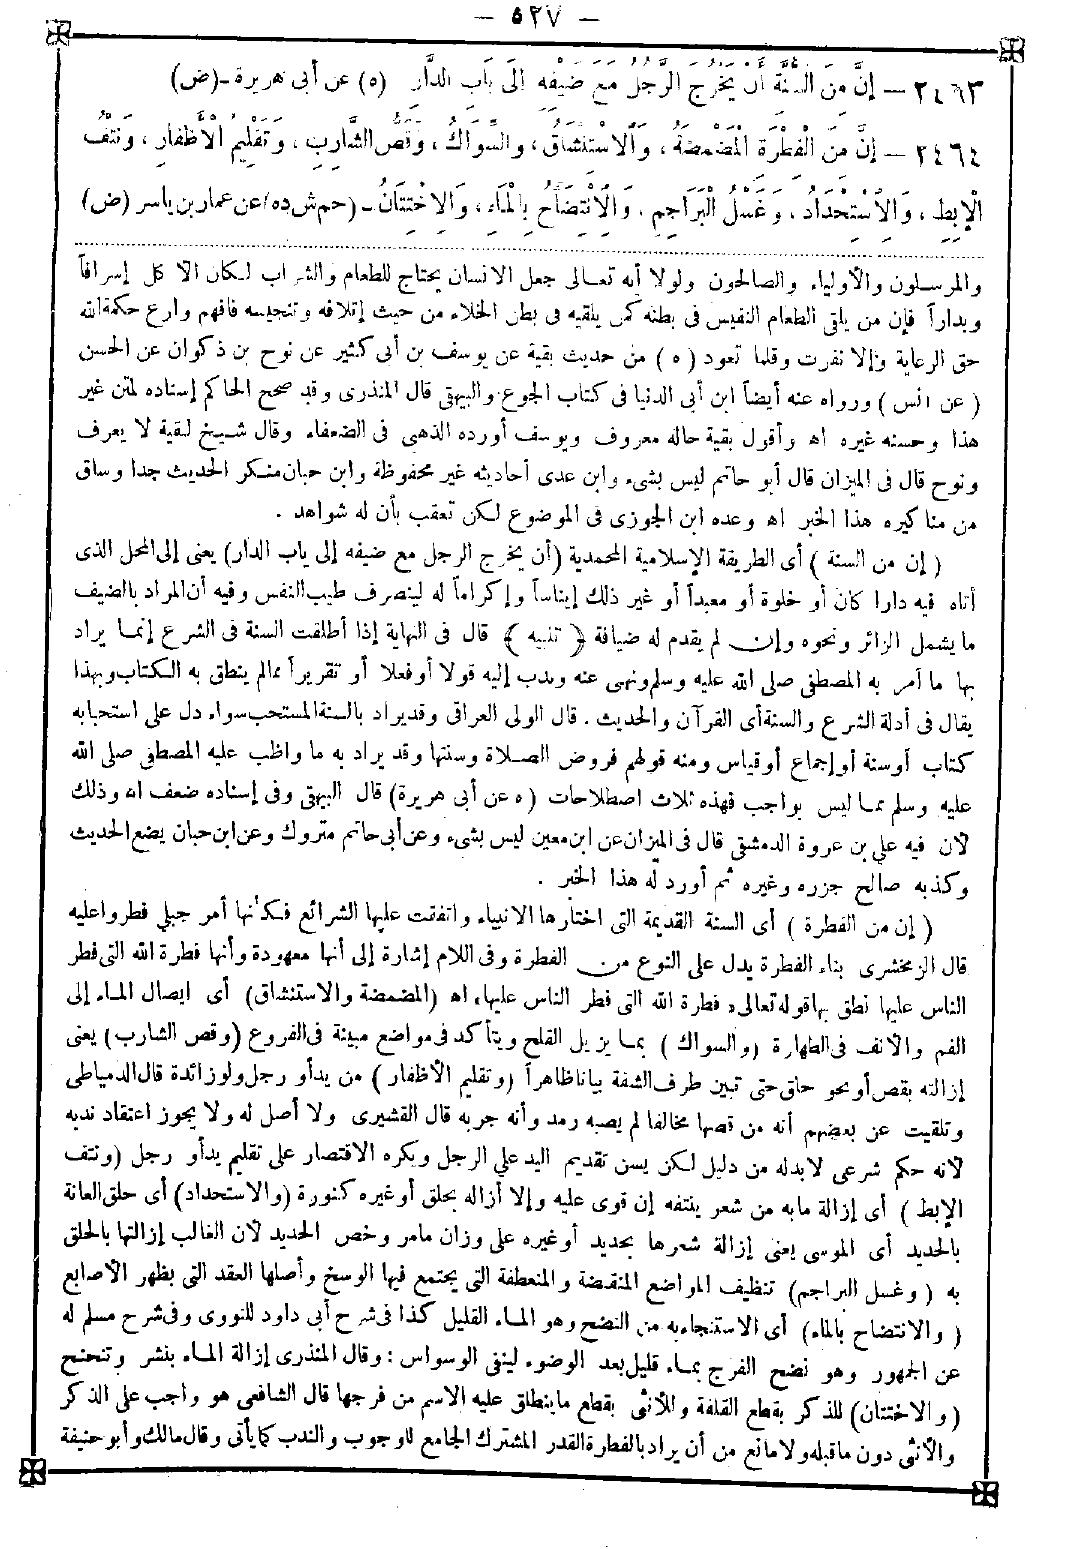 — ٥٢٧ —
٢٤٦٣ — إِنَّ مِنَ السُّنَّةِ أَنْ يَخْرُجَ الرَّجُلُ مَعَ ضَيْفِهِ إِلَى بَابِ الدَّارِ (٥) عن أبى هريرة - (ض)
٢٤٦٤ — إِنَّ مِنَ الْفِطْرَةِ الْمَضْمَضَةُ، وَالْاسْتِنْشَاقُ، وَالسِّوَاكُ، وَقَصُّ الشَّارِبِ، وَتَقْلِيمُ الْأَظْفَارِ، وَنَتْفُ
الْإِبِطِ، وَالِاسْتِحْدَادُ، وَغَسْلُ الْبَرَاجِمِ، وَالِانْتِضَاحُ بِالْمَاءِ، وَالِاخْتِتَانُ - (حم ش ده) عن عمار بن ياسر (ض)
والمرسلون والأولياء والصالحون ولولا أنه تعالى جعل الانسان يحتاج للطعام والشراب لكان الآكل إسرافاً
وبداراً فإن من يلقى الطعام النفيس فى بطنه كمن يلقيه فى بطن الخلاء من حيث إتلافه وتنجيسه فافهم وارع حكمة الله
حق الرعاية وإلا نفرت وقلما تعود (ه) من حديث بقية عن يوسف بن أبى كثير عن نوح بن ذكوان عن الحسن
(عن أنس) ورواه عنه أيضاً ابن أبى الدنيا فى كتاب الجوع والبيهقى قال المنذرى وقد صحح الحاكم إسناده لمتن غير
هذا وحسنه غيره اه وأقول بقية حاله معروف ويوسف أورده الذهبى فى الضعفاء وقال شيخ لبقية لا يعرف
ونوح قال فى الميزان قال أبو حاتم ليس بشىء وابن عدى أحاديثه غير محفوظة وابن حبان منكر الحديث جدا وساق
من مناكيره هذا الخبر اه وعده ابن الجوزى فى الموضوع لكن تعقب بأن له شواهد .
(إن من السنة) أى الطريقة الإسلامية المحمدية (أن يخرج الرجل مع ضيفه إلى باب الدار) يعنى إلى المحل الذى
أتاه فيه دارا كان أو خلوة أو معبداً أو غير ذلك إيناساً وإكراماً له لينصرف طيب النفس وفيه أن المراد بالضيف
ما يشمل الزائر ونحوه وإن لم يقدم له ضيافة ﴿تنبيه﴾ قال فى النهاية إذا أطلقت السنة فى الشرع إنما يراد
بها ما أمر به المصطفى صلى الله عليه وسلم ونهى عنه وندب إليه قولا أو فعلا أو تقريراً مما لم ينطق به الكتاب وبهذا
يقال فى أدلة الشرع والسنة أى القرآن والحديث . قال الولى العراقى وقد يراد بالسنة المستحب سواء دل على استحبابه
كتاب أو سنة أو إجماع أو قياس ومنه قولهم فروض الصلاة وسنتها وقد يراد به ما واظب عليه المصطفى صلى الله
عليه وسلم مما ليس بواجب فهذه ثلاث اصطلاحات (ه عن أبى هريرة) قال البيهقى وفى إسناده ضعف اه وذلك
لأن فيه علي بن عروة الدمشقى قال فى الميزان عن ابن معين ليس بشىء وعن أبى حاتم متروك وعن ابن حبان يضع الحديث
وكذبه صالح جزره وغيره ثم أورد له هذا الخبر .
(إن من الفطرة) أى السنة القديمة التى اختارها الانبياء واتفقت عليها الشرائع فكأنها أمر جبلي فطروا عليه
قال الزمخشرى بناء الفطرة يدل على النوع من الفطرة وفى اللام إشارة إلى أنها معهودة وأنها فطرة الله التى فطر
الناس عليها نطق بها قوله تعالى، فطرة الله التى فطر الناس عليها، اه (المضمضة والاستنشاق) أى ايصال الماء إلى
الفم والأنف فى الطهارة (والسواك) بما يزيل القلح ويتأكد فى مواضع مبينة فى الفروع (وقص الشارب) يعنى
إزالته بقص أو نحو حلق حتى تبين طرف الشفة بيانا ظاهراً (وتقليم الأظفار) من يد أو رجل ولو زائدة قال الدمياطى
وتلقيت عن بعضهم أنه من قصها مخالفا لم يصبه رمد وأنه جربه قال القشيرى ولا أصل له ولا يجوز اعتقاد ندبه
لأنه حكم شرعى لا بد له من دليل لكن يسن تقديم اليد على الرجل ويكره الاقتصار على تقليم يد أو رجل (ونتف
الإبط) أى إزالة ما به من شعر ينتفه إن قوى عليه وإلا أزاله بحلق أو غيره كنورة (والاستحداد) أى حلق العانة
بالحديد أى الموسى يعنى إزالة شعرها بحديد أو غيره على وزان مامر وخص الحديد لأن الغالب إزالتها بالحلق
به (وغسل البراجم) تنظيف المواضع المنقبضة والمنعطفة التى يجتمع فيها الوسخ وأصلها العقد التى بظهر الأصابع
(والانتضاح بالماء) أى الاستنجاء به من النضح وهو الماء القليل كذا فى شرح أبى داود للنووى وفى شرح مسلم له
عن الجمهور وهو نضح الفرج بماء قليل بعد الوضوء لينفى الوسواس: وقال المنذرى إزالة الماء بنشر وتنحنح
(والاختتان) للذكر بقطع القلفة وللأنثى بقطع ما ينطلق عليه الاسم من فرجها قال الشافعى هو واجب على الذكر
والأنثى دون ما قبله ولا مانع من أن يراد بالفطرة القدر المشترك الجامع للوجوب والندب كما يأتى وقال مالك وأبو حنيفة